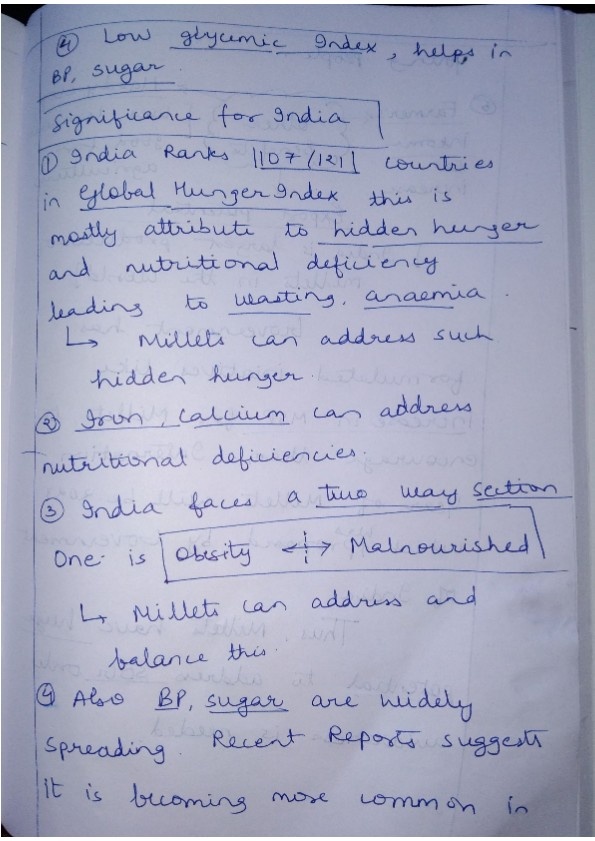 ④ Low glycemic Index, helps in
BP, sugar
Significance for India
① India Ranks 107/121 countries
in Global Hunger Index this is
mostly attribute to hidden hunger
and nutritional deficiency
leading to wasting, anaemia.
↳ Millets can address such
hidden hunger.
② Iron, Calcium can address
nutritional deficiencies.
③ India faces a two way section
One is Obesity ↔ Malnourished
↳ Millets can address and
balance this.
④ Also BP, sugar are widely
spreading. Recent Reports suggests
it is becoming more common in